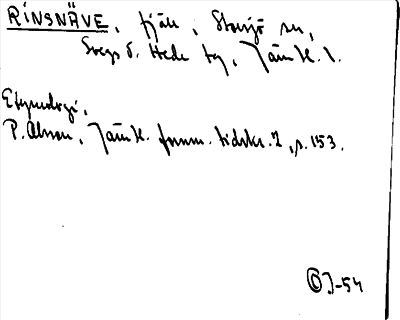 RINSNÄVE, fjäll, Storsjö sn,
Svegs o. Hede tg, Jämtl. l.
Etymologi,
P. Olsson, Jämtl. fornm. tidskr. 2, s. 153.
J-54